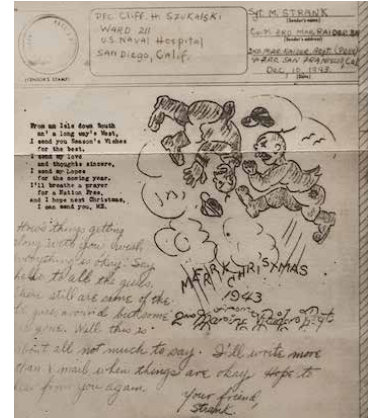 PFC. Cliff. H. SZUKALSKI
WARD 211
U.S. NAVAL Hospital
SAN Diego, Calif.
Sgt. M. STRANK
(Sender's name)
(Sender's address)
DEC 10, 1943
(Date)
(CENSOR'S STAMP)
From an Isle down South
an' a long way's West,
I send you Season's Wishes
for the best.
I send my love
and thoughts sincere,
I send my hopes
for the coming year.
I'll breathe a prayer
for a Nation Free,
and I hope next Christmas,
I can send you, ME.
MERRY CHRISTMAS
1943
2nd Marine Raider Regt
How's things getting
along with you
everything is okay. Say
hello to all the guys,
there still are some of the
guys around but some
gone. Well this is
about all not much to say. I'll write more
mail when things are okay. Hope to
hear from you again.
Your friend
Strank